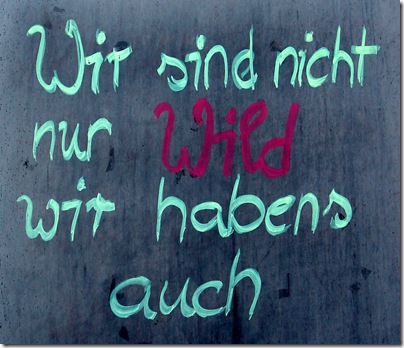 Wir sind nicht
nur Wild
wir habens
auch